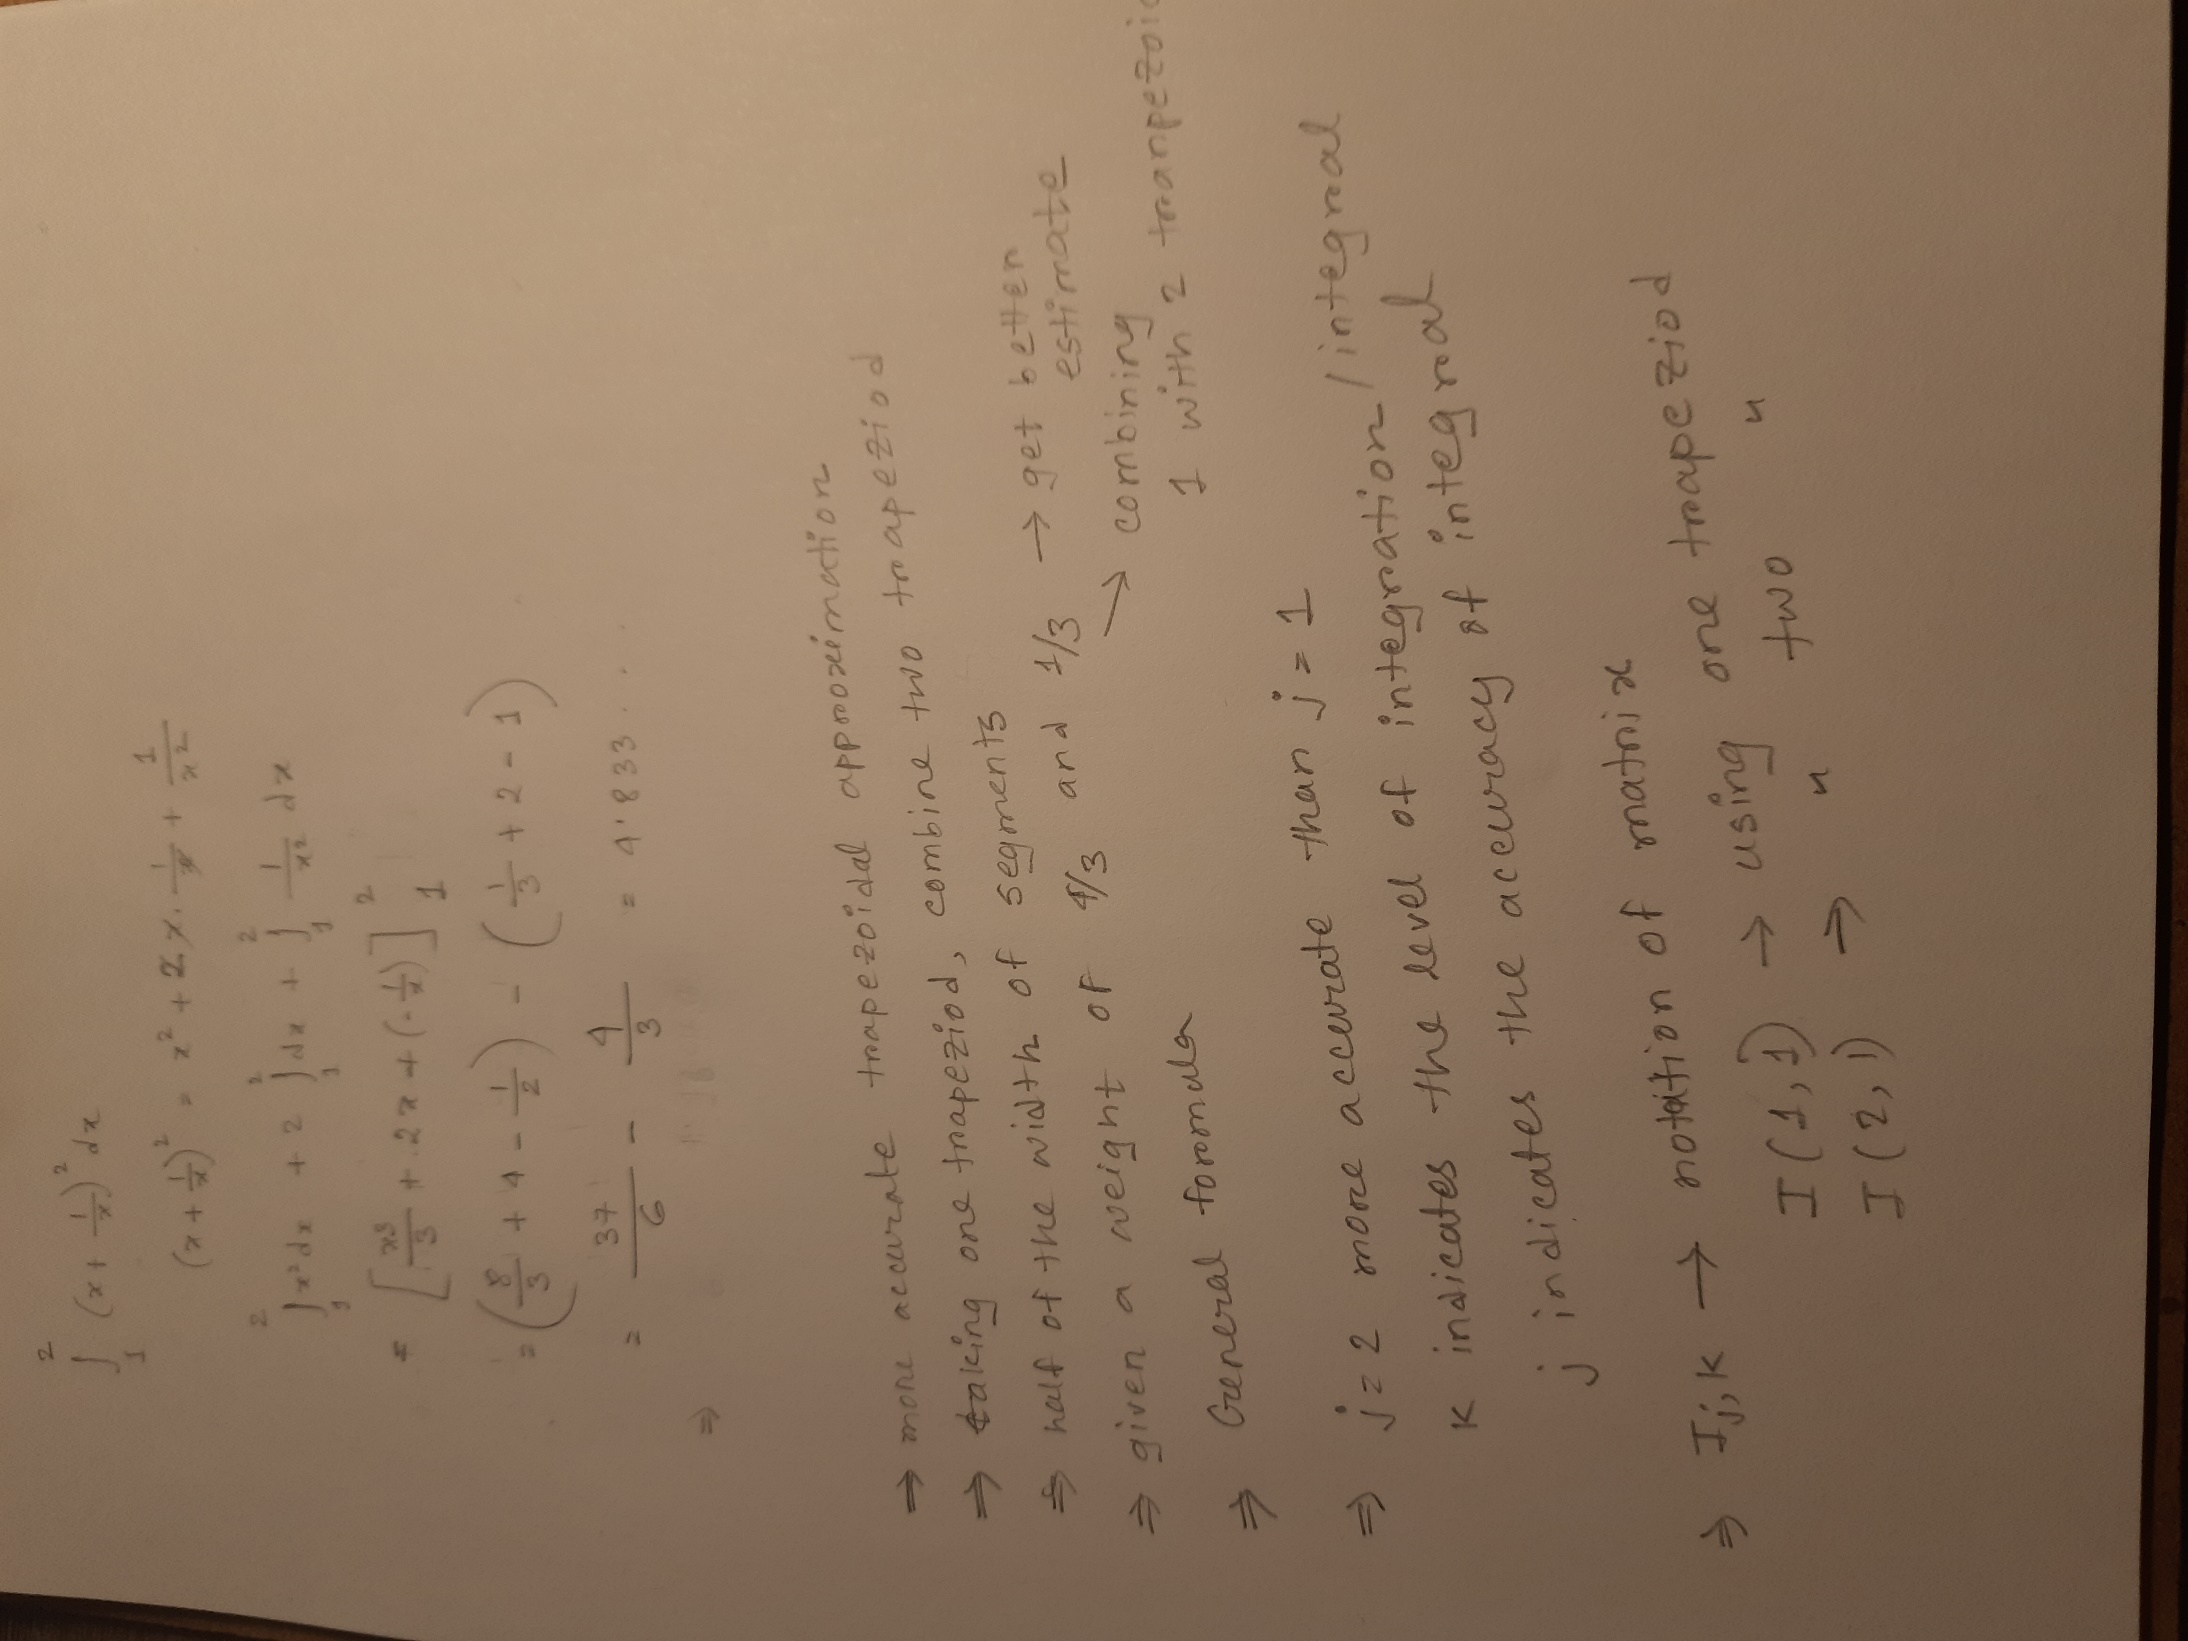 ∫₁² (x + 1/x)² dx
(x + 1/x)² = x² + 2x · 1/x + 1/x²
∫₁² x² dx + 2 ∫₁² dx + ∫₁² 1/x² dx
= [x³/3 + 2x + (-1/x)]₁²
= (8/3 + 4 - 1/2) - (1/3 + 2 - 1)
= 37/6 - 4/3 = 4.833...
⇒
⇒ more accurate trapezoidal approximation
⇒ taking one trapeziod, combine two trapeziod
⇒ half of the width of segments
⇒ given a weight of 4/3 and 1/3 → get better estimate
→ combining
1 with 2 tranpezoi
⇒ General formula
⇒ j = 2 more accurate than j = 1
K indicates the level of integration/integral
j indicates the accuracy of integral
⇒ Ij,K → notation of matrix
I(1,1) → using one trapeziod
I(2,1) → " two "